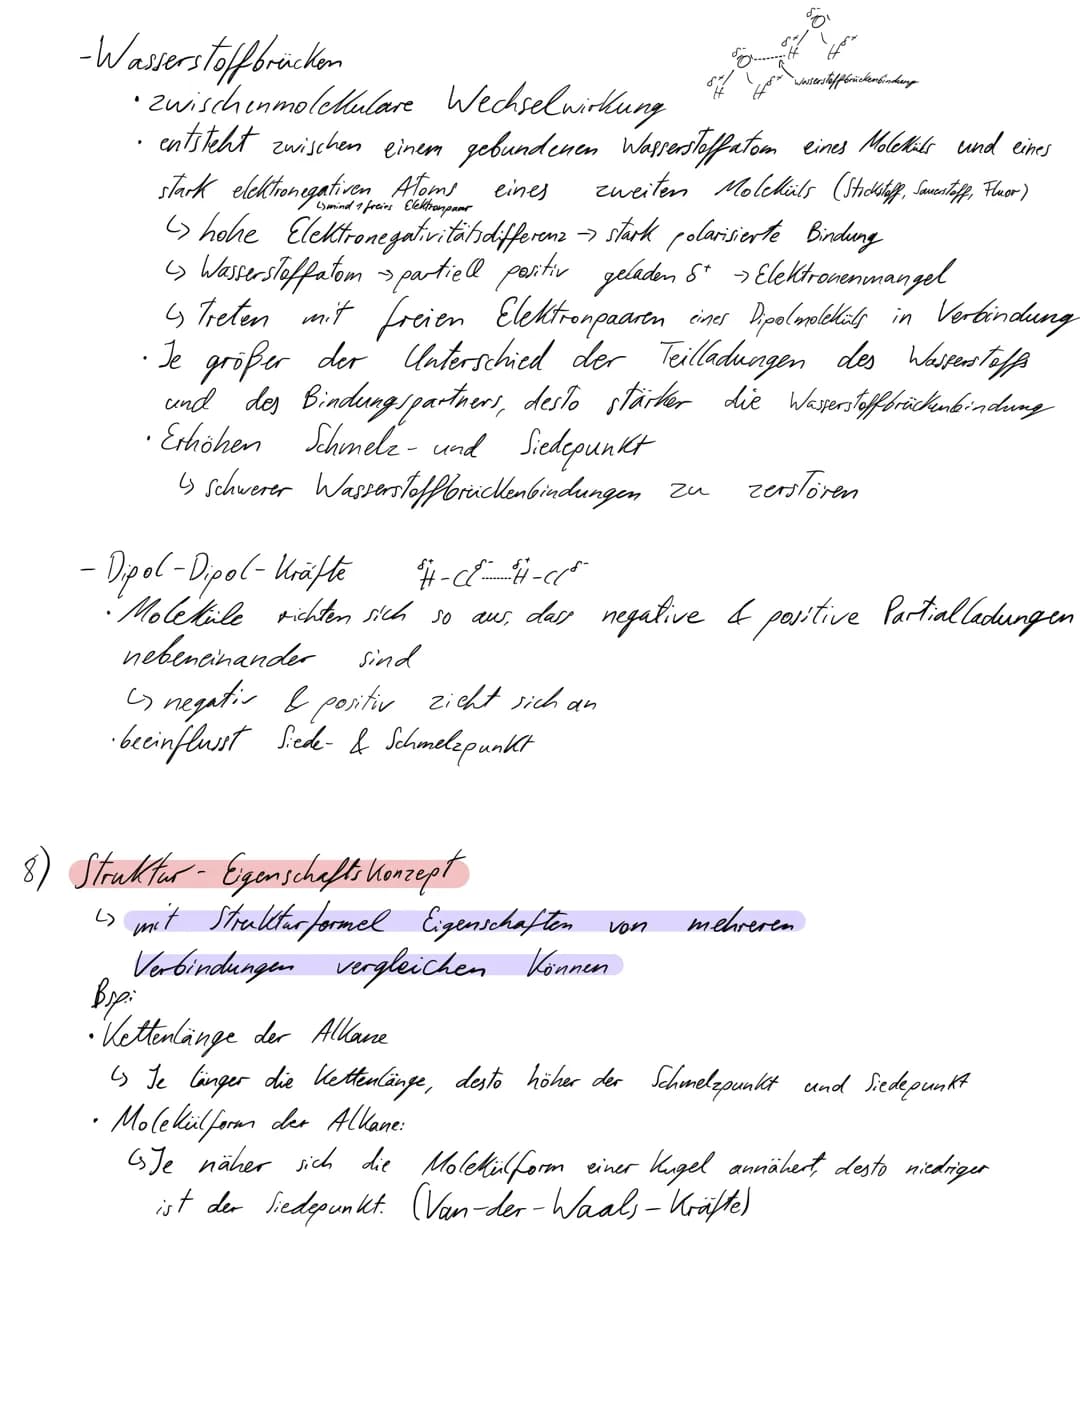 δ-
O
-Wasserstoffbrücken
δ- O ........ δ+ H H δ+
δ+ H H δ+ Wasserstoffbrückenbindung
• zwischenmolekulare Wechselwirkung
• entsteht zwischen einem gebundenen Wasserstoffatom eines Moleküls und eines
stark elektronegativen Atoms eines zweiten Moleküls (Stickstoff, Sauerstoff, Fluor)
↳ mind 1 freies Elektronpaar
↳ hohe Elektronegativitätsdifferenz → stark polarisierte Bindung
↳ Wasserstoffatom → partiell positiv geladen δ+ → Elektronenmangel
↳ Treten mit freien Elektronpaaren eines Dipolmoleküls in Verbindung
• Je größer der Unterschied der Teilladungen des Wasserstoffs
und des Bindungspartners, desto stärker die Wasserstoffbrückenbindung
• Erhöhen Schmelz- und Siedepunkt
↳ schwerer Wasserstoffbrückenbindungen zu zerstören
- Dipol-Dipol-Kräfte δ+ H-Cl δ- ........ δ+ H-Cl δ-
• Moleküle richten sich so aus, dass negative & positive Partialladungen
nebeneinander sind
↳ negativ & positiv zieht sich an
• beeinflusst Siede- & Schmelzpunkt
8) Struktur-Eigenschaftskonzept
↳ mit Strukturformel Eigenschaften von mehreren
Verbindungen vergleichen können
Bsp:
• Kettenlänge der Alkane
↳ Je länger die Kettenlänge, desto höher der Schmelzpunkt und Siedepunkt
• Molekülform der Alkane:
↳ Je näher sich die Molekülform einer Kugel annähert, desto niedriger
ist der Siedepunkt. (Van-der-Waals-Kräfte)